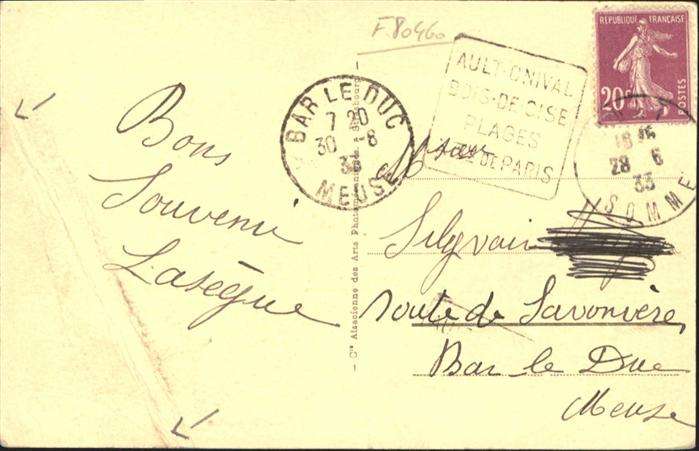 F.80460
REPUBLIQUE FRANÇAISE
20c
POSTES
AULT-ONIVAL
BOIS-DE-CISE
PLAGES
DE PARIS
BAR LE DUC
7 20
30 -8
33
MEUSE
28 6
33
SOMME
Bons
Souvenir
Lasègue
Silyvain
Route de Savonière
Bar le Duc
Meuse
Cie Alsacienne des Arts Photomécaniques, Strasbourg